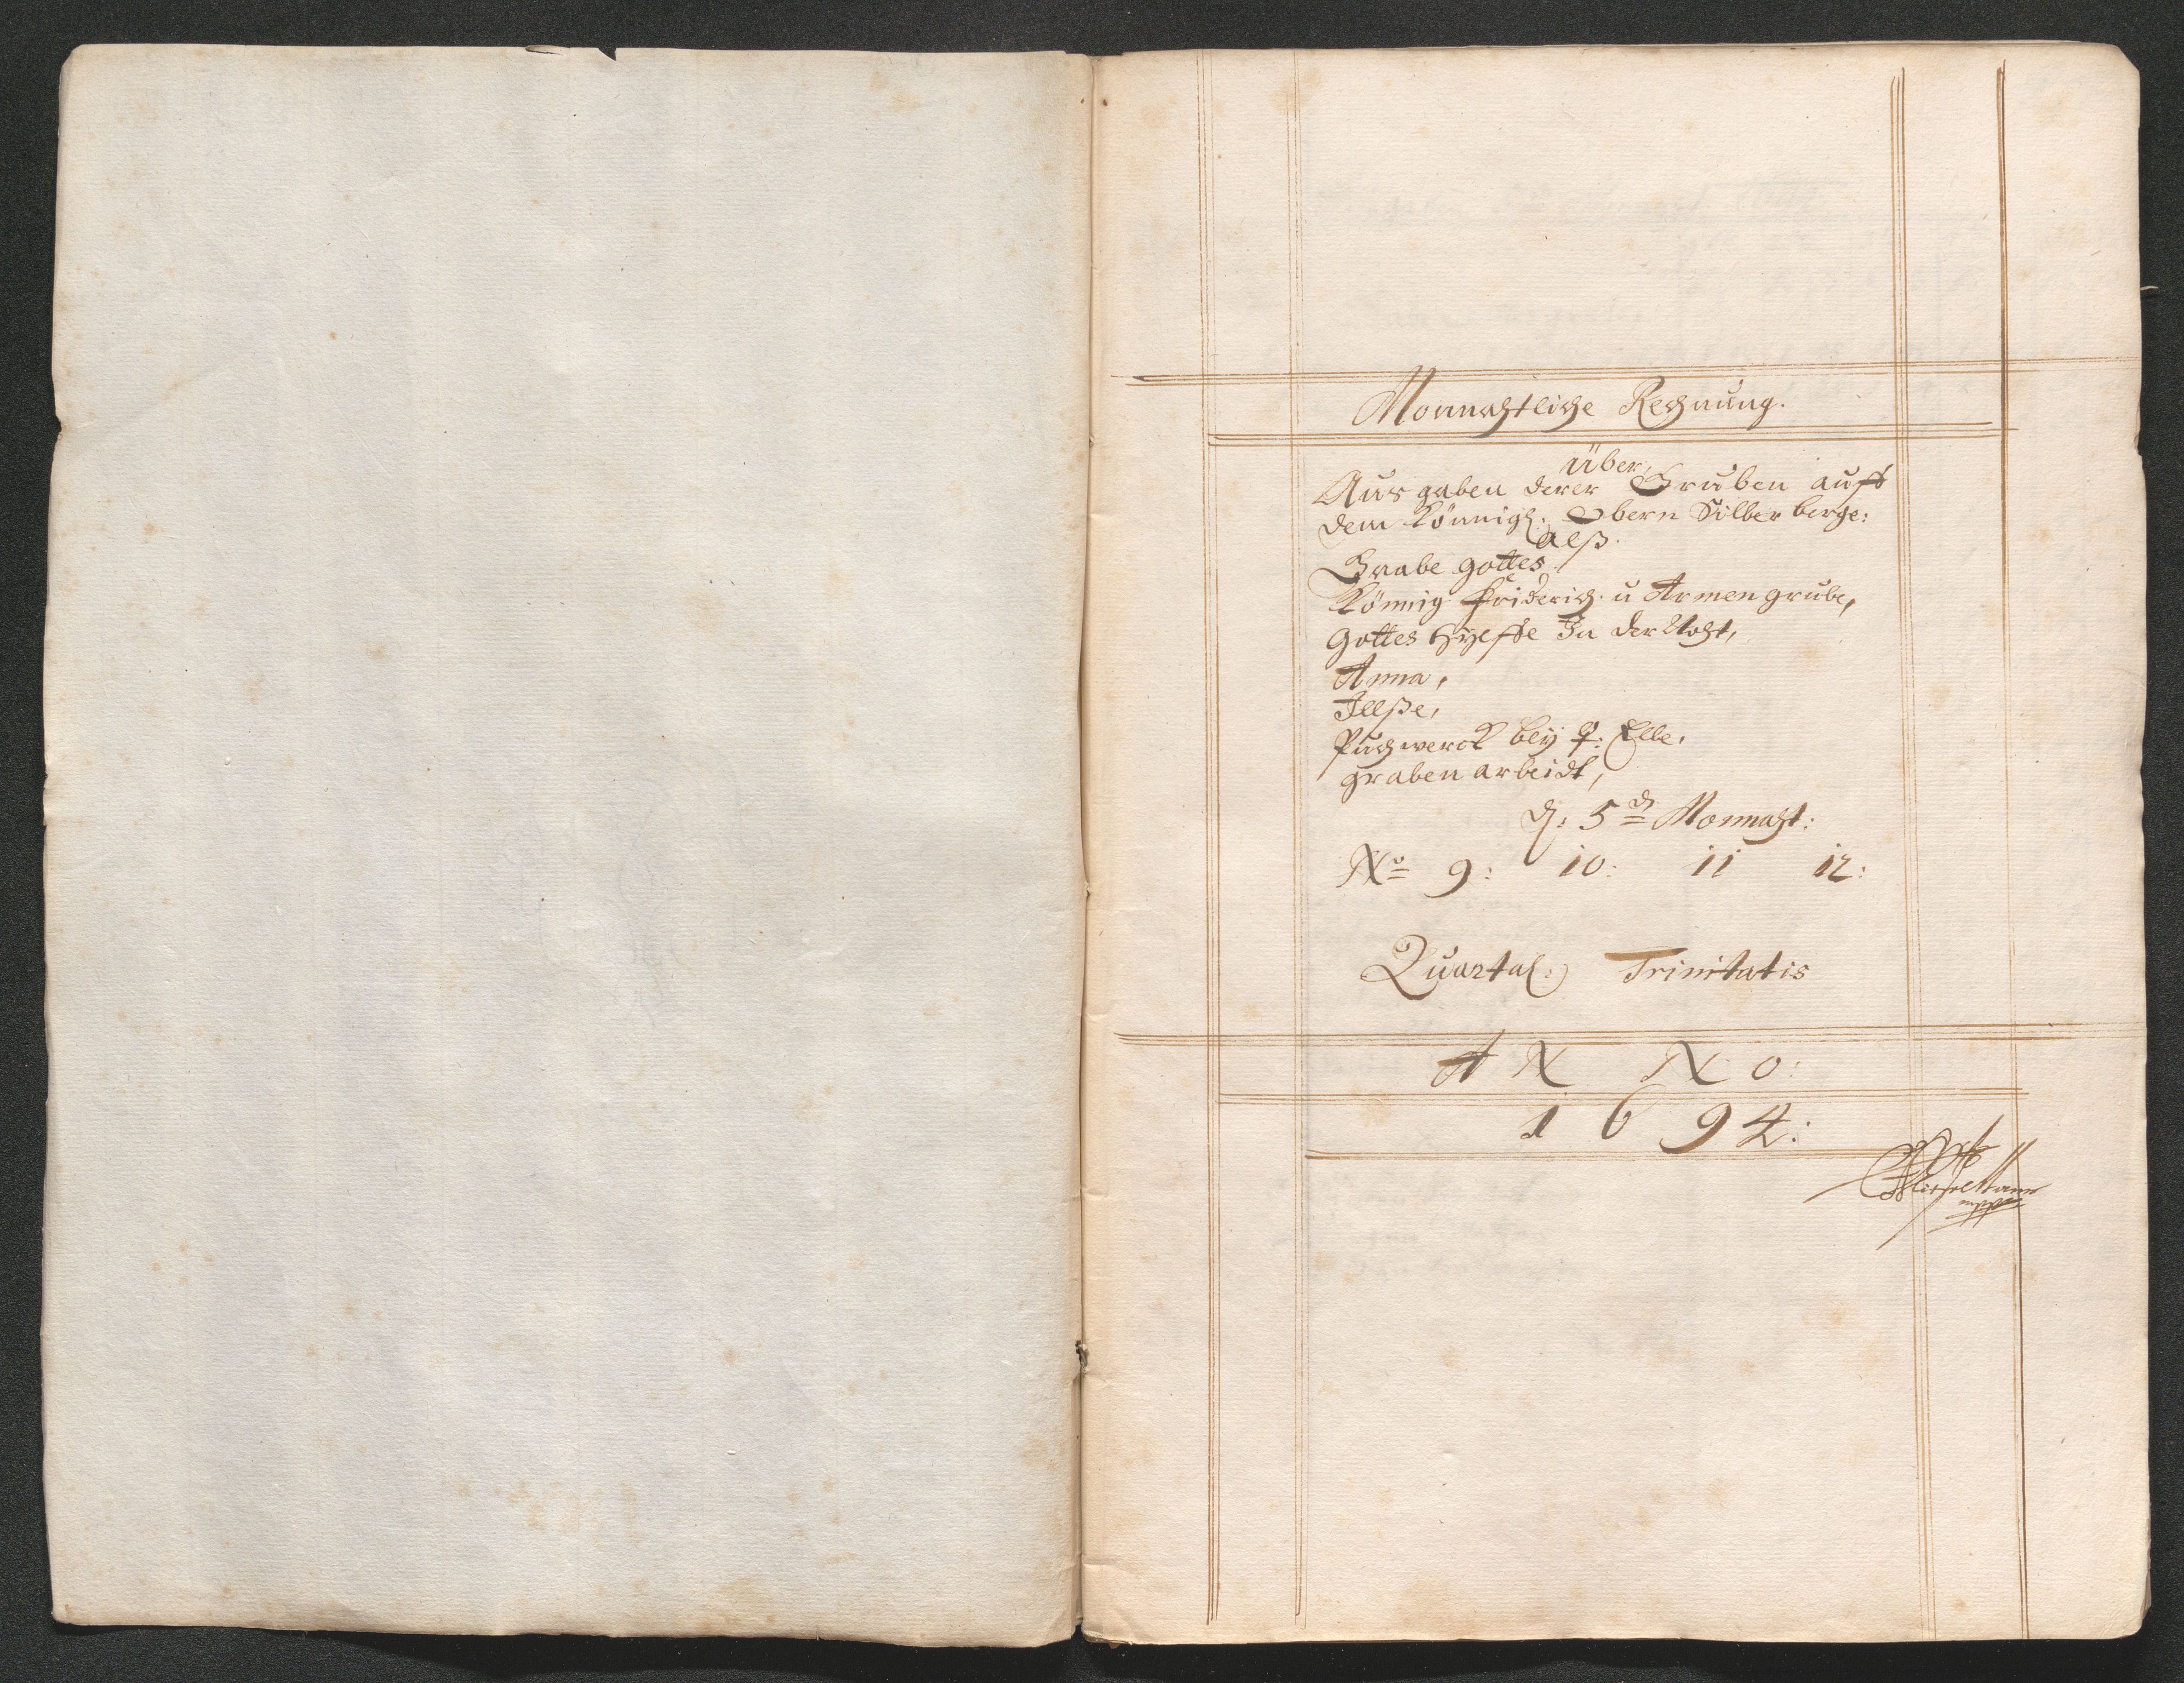 Monnahtliche Rechnung.
Über
Ausgaben derer Gruben auff
dem Könnigl: Obern Silber berge:
alß.
Gnabe gottes.
Könnig Friderich. u Armen grube,
Gottes Hylffe In der Noht,
Anna,
Illße,
Puchwerck beÿ q: Elbe.
graben arbeidt,
d: 5 d Monnaht:
No 9: 10: 11 12:
Quartal: Trinitatis
A N N O:
1 6 9 4:
mppria